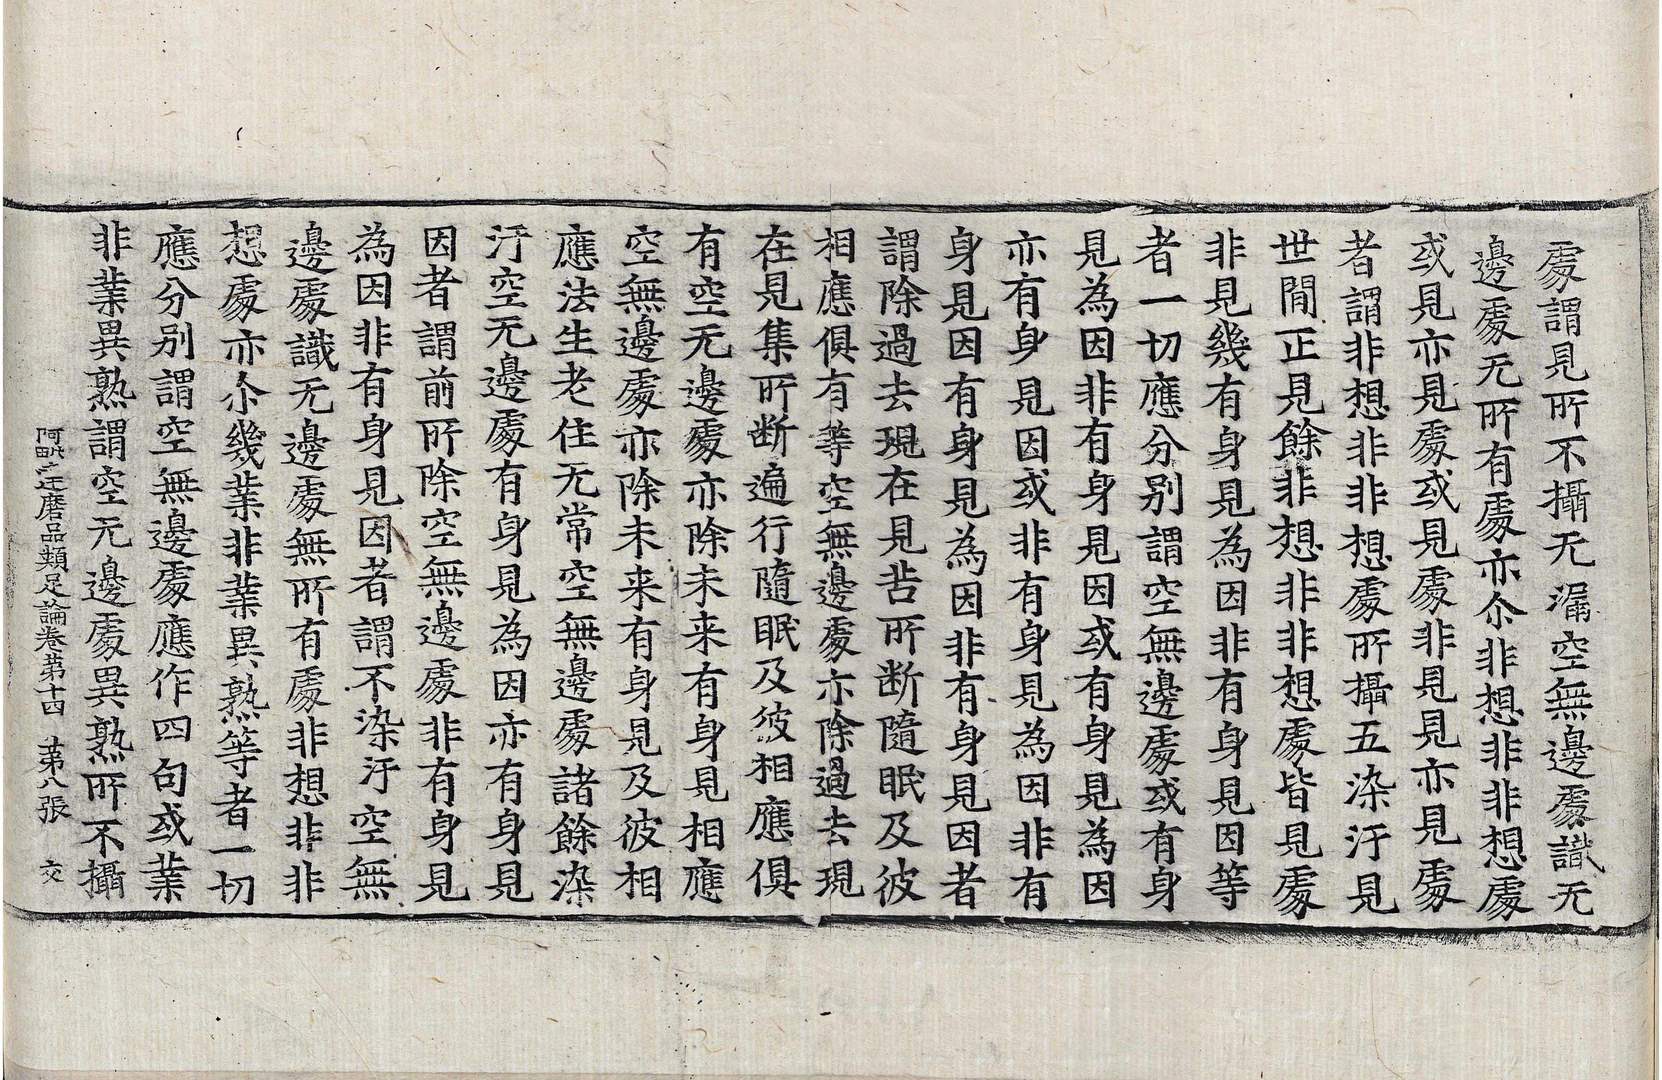 處謂見所不攝无漏空無邊處識无
邊處无所有處亦尒非想非非想處
或見亦見處或見處非見見亦見處
者謂非想非非想處所攝五染汙見
世間正見餘非想非非想處皆見處
非見幾有身見為因非有身見因等
者一切應分別謂空無邊處或有身
見為因非有身見因或有身見為因
亦有身見因或非有身見為因非有
身見因有身見為因非有身見因者
謂除過去現在見苦所斷隨眠及彼
相應俱有等空無邊處亦除過去現
在見集所斷遍行隨眠及彼相應俱
有空无邊處亦除未来有身見相應
空無邊處亦除未来有身見及彼相
應法生老住无常空無邊處諸餘染
汙空无邊處有身見為因亦有身見
因者謂前所除空無邊處非有身見
為因非有身見因者謂不染汙空無
邊處識无邊處無所有處非想非非
想處亦尒幾業非業異熟等者一切
應分別謂空無邊處應作四句或業
非業異熟謂空无邊處異熟所不攝
阿毗达磨品類足論卷第十四 第八張 交